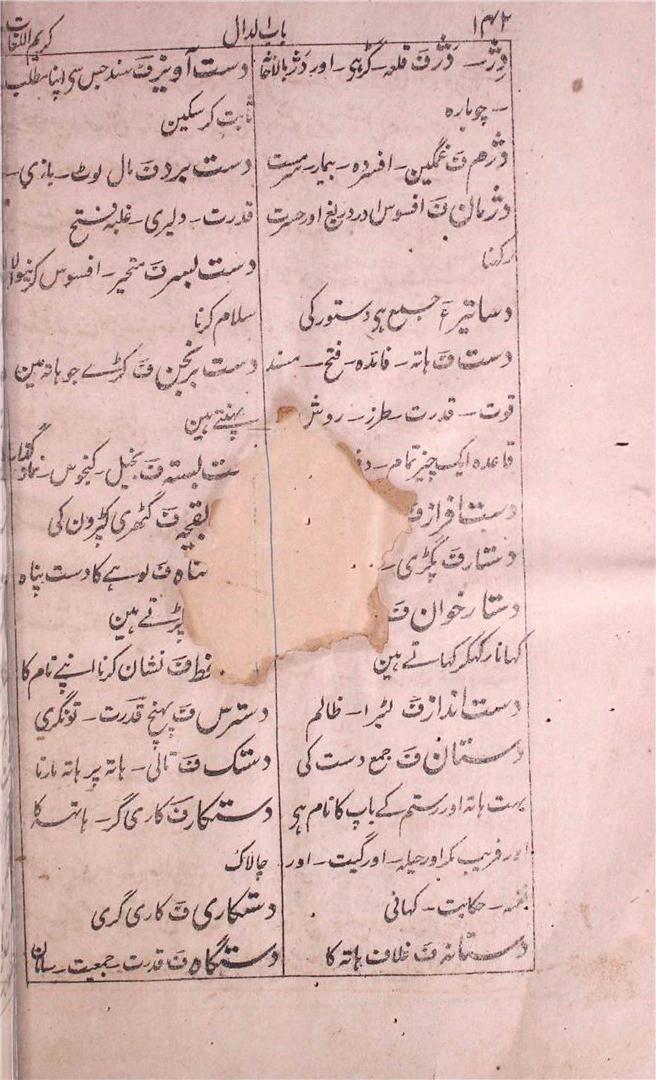 ۱۴۲ باب الدال کریم اللغات
دِژ۔ دَژ ف قلعہ۔ گڑہی۔ اور دژ بالاخا
۔ چوبارہ
دژم ف غمگین۔ افسردہ۔ بیمار۔ سرمست
دژمان ف افسوس اور دریغ اور حسرت
کرنا
دساتیر ع جمع ہی دستور کی
دست ف ہاتہ۔ فائدہ۔ فتح۔ مسند
قوت۔ قدرت۔ طرز۔ روش
قاعدہ ایک چیز تمام۔
دست افراز ف
دستار ف پگڑی۔
دستار خوان ف
کہانا رکہکر کہاتے ہین
دست انداز ف لٹیرا۔ ظالم
دستان ف جمع دست کی
بہت ہاتہ اور رستم کے باپ کا نام ہی
اور فریب مکر اور حیلہ۔ اور گیت۔ اور
۔ حکایت۔ کہانی
دستانہ ف غلاف ہاتہ کا
دست آویز ف سند جس سی اپنا مطلب
ثابت کر سکین
دست برد ف مال لوٹ۔ بازی۔
قدرت۔ دلیری۔ غلبہ فتح
دست بسر ف متحیر۔ افسوس کرنیوالا
سلام کرنا
دست برنجن ف کڑے جو ہاتہ مین
پہنتے ہین
ست بستہ ف بخیل۔ کنجوس۔ نماز گذار
بقچہ ف گٹھری کپڑون کی
پناہ ف لوہے کا دست پناہ
پڑتے ہین
خط ف نشان کرنا اپنے نام کا
دسترس ف پہنچ قدرت۔ تونگری
دستک ف تالی۔ ہاتہ پر ہاتہ مارنا
دستکار ف کاری گر۔ ہاتہ کا
چالاک
دستکاری ف کاری گری
دستگاہ ف قدرت۔ جمعیت۔ سامان